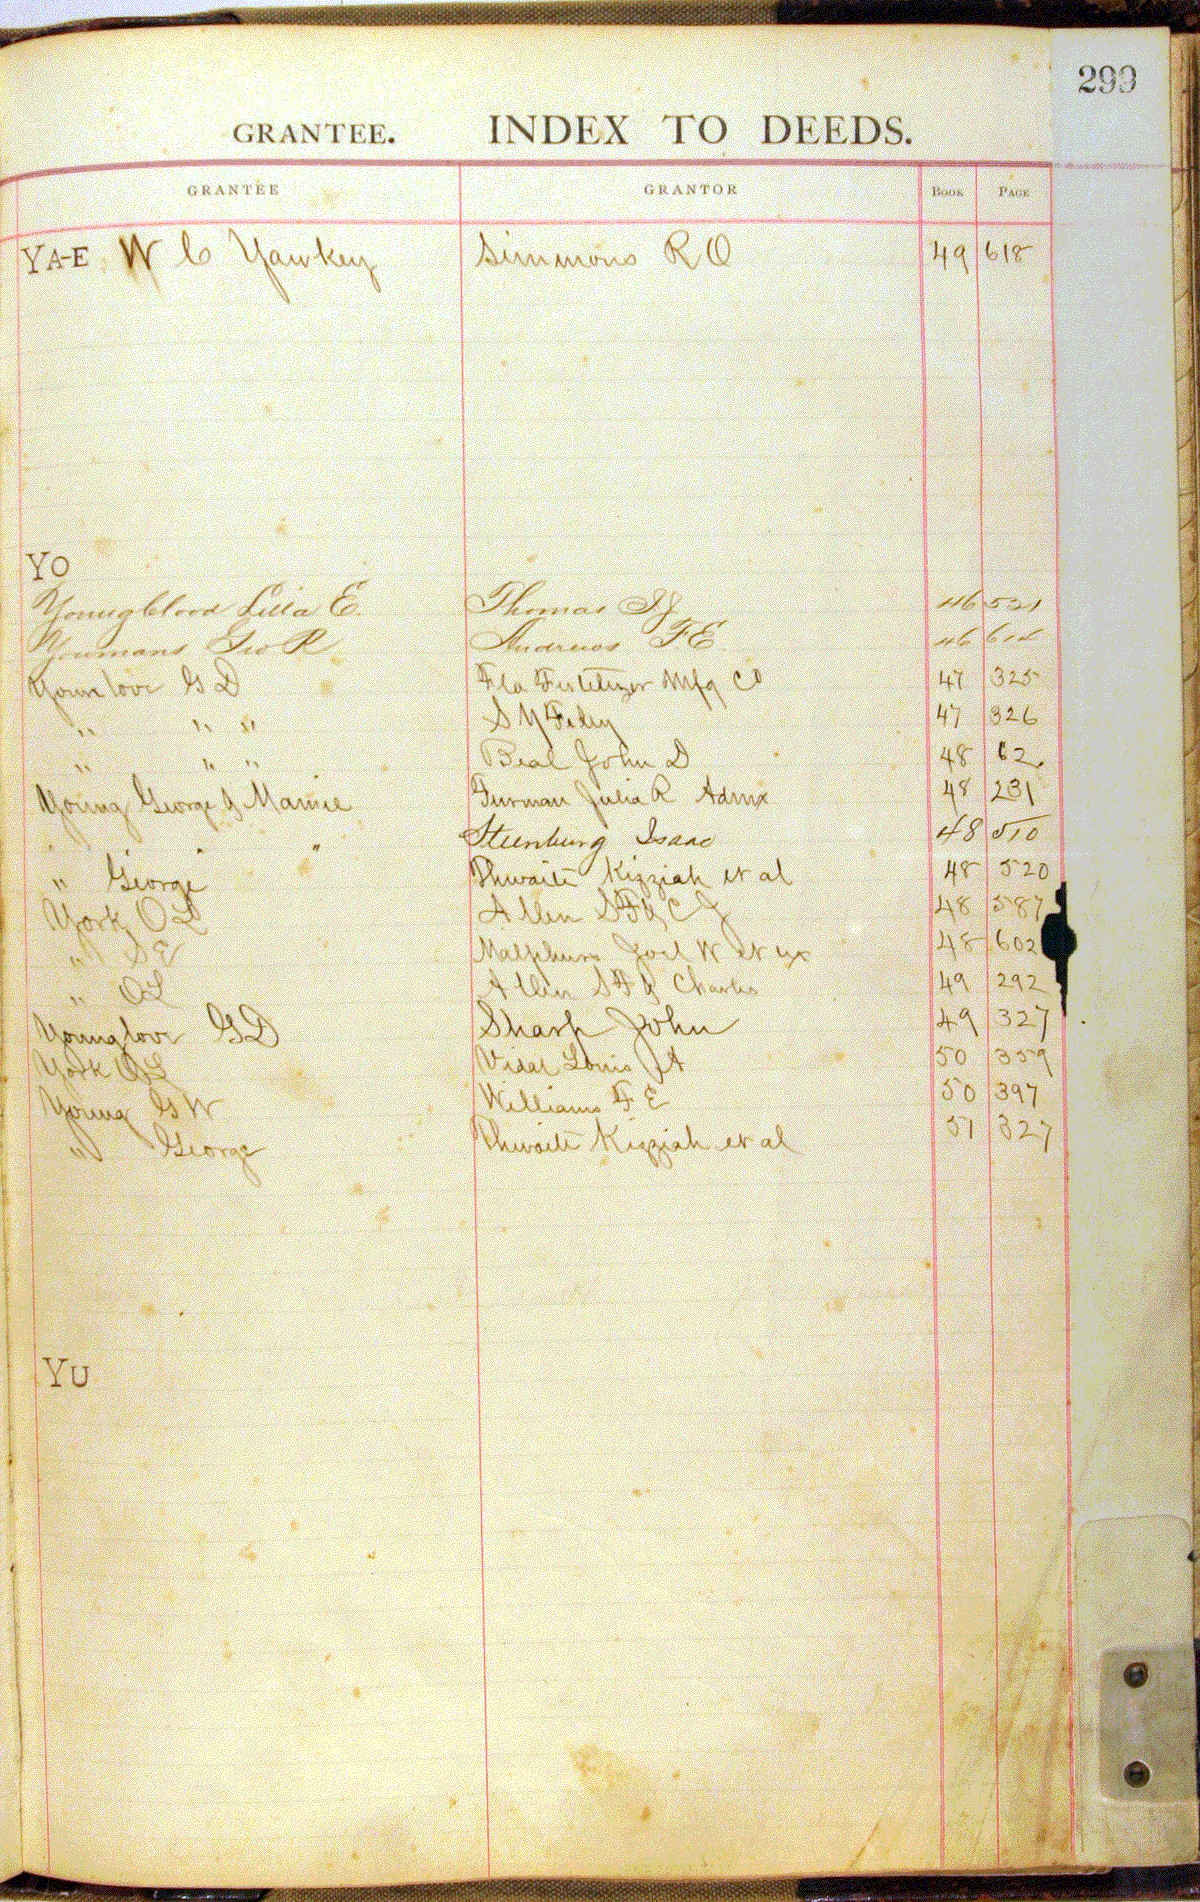 299
GRANTEE. INDEX TO DEEDS.
GRANTEE GRANTOR BOOK PAGE
YA-E W C Yawkey Simmons R O 49 618
YO
Youngblood Lilla E Thomas 46 521
Youmans Geo R Andrews F.E. 46
Younlove G D Fla Fertilizer Mfg Co 47 325
" " " S Y 47 326
" " " Beal John D 48 62
Young George & Mamie Furman Julia R Admx 48 231
" " " Steenburg Isaac 48 510
" George Thwaite Kizziah et al 48 520
York O L Allen S F & C J 48 587
" S E Joel W et ux 48 602
" OL Allen S F & Charles 49 292
Younglove G D Sharp John 49 327
York OL Vidal Louis A 50 359
Young G W Williams F E 50 397
" George Thwaite Kizziah et al 51 327
YU